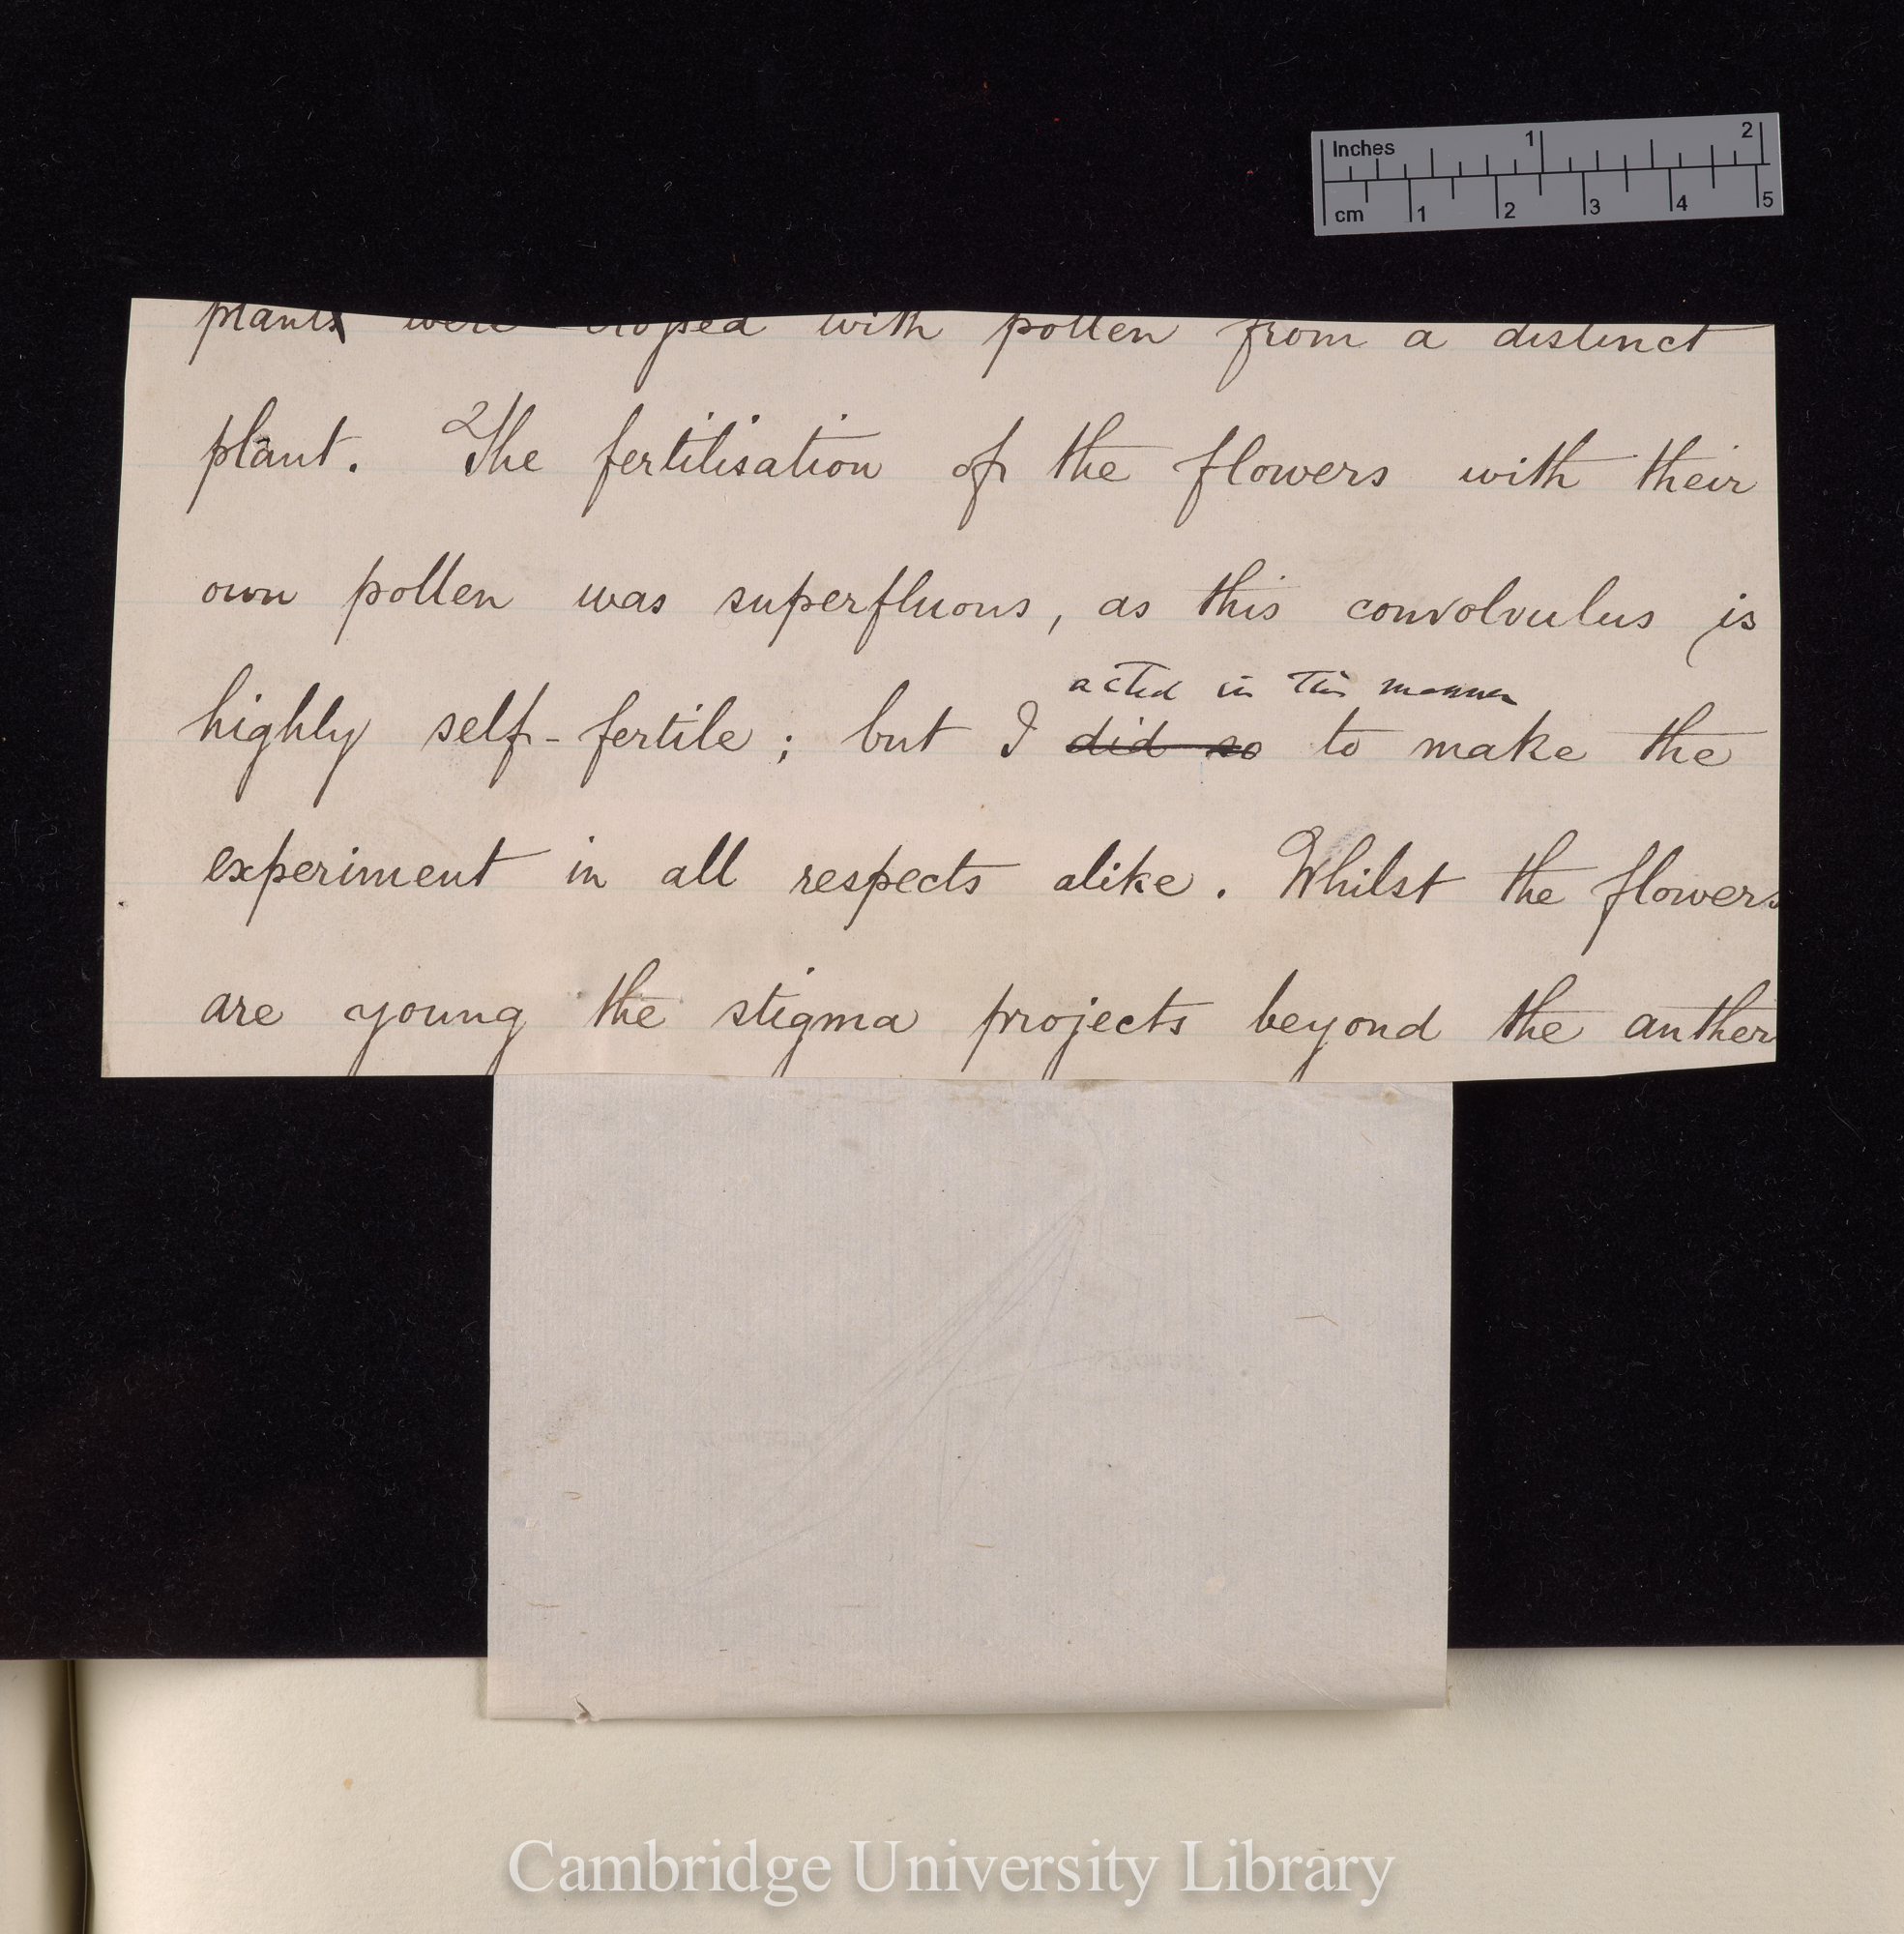 Inches 1 2
cm 1 2 3 4 5
plants were crossed with pollen from a distinct
plant. The fertilisation of the flowers with their
own pollen was superfluous, as this convolvulus is
acted in this manner
highly self-fertile; but I did so to make the
experiment in all respects alike. Whilst the flowers
are young the stigma projects beyond the anther
Cambridge University Library